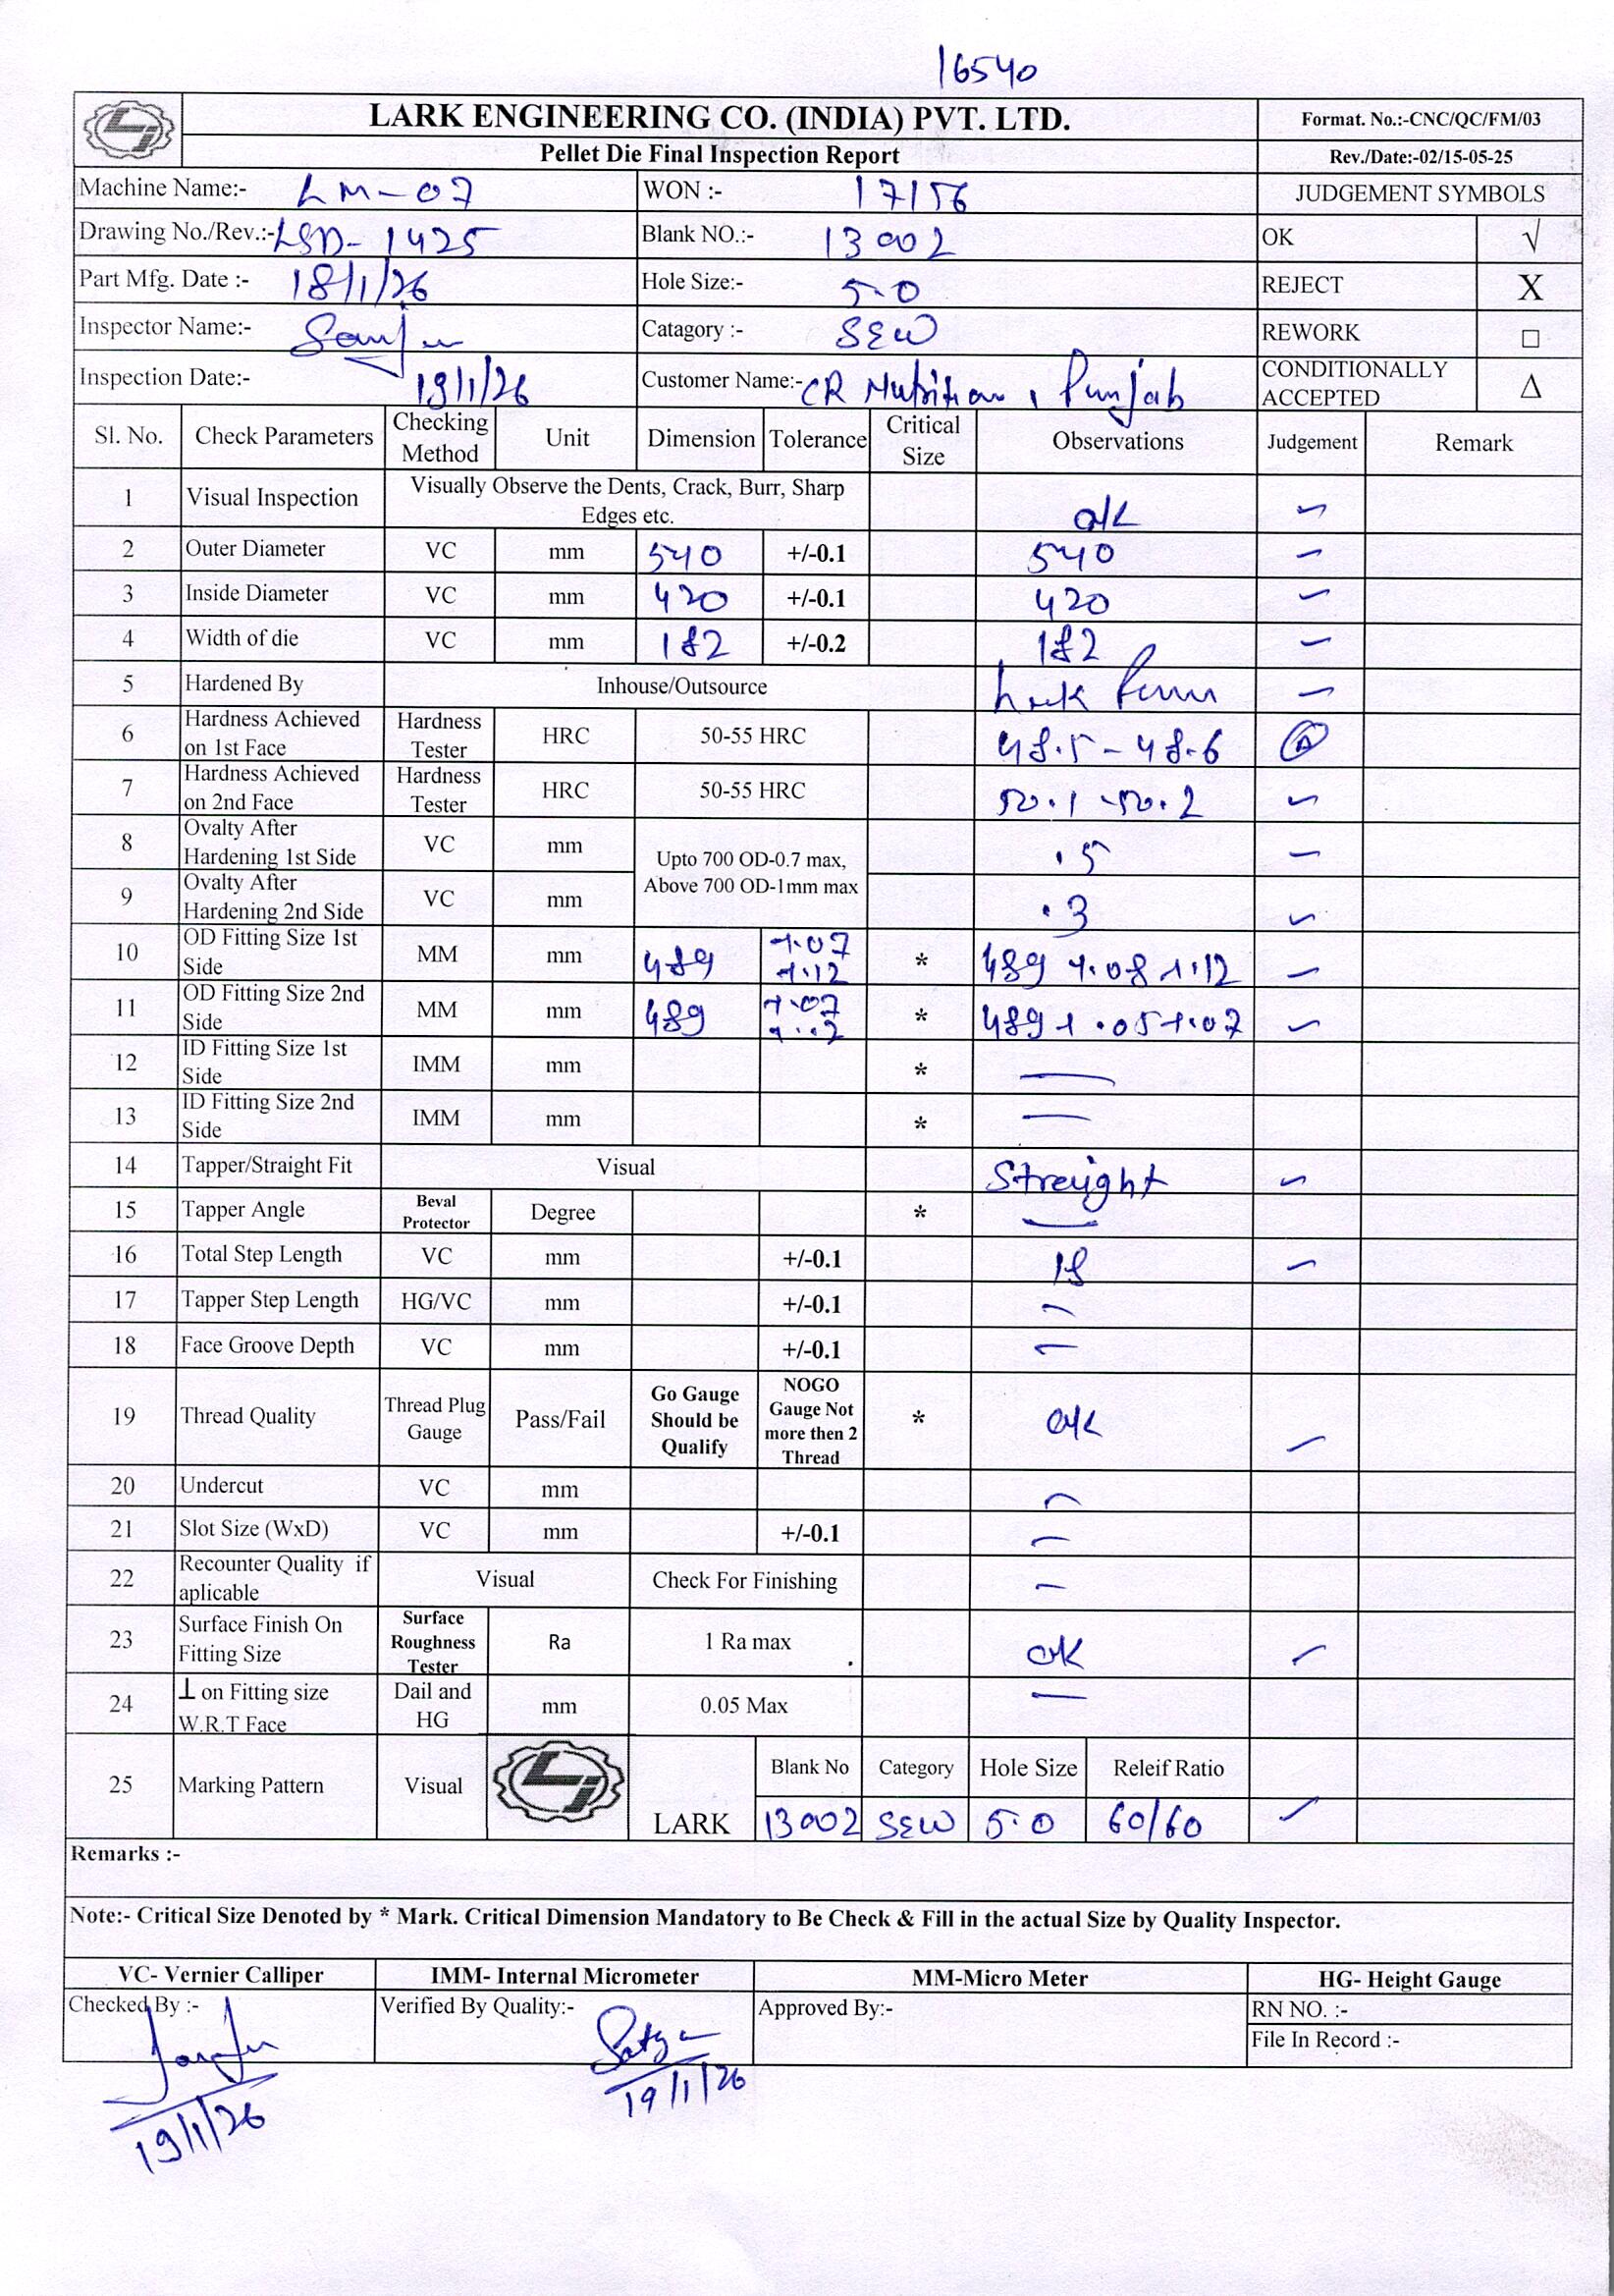 16540
LARK ENGINEERING CO. (INDIA) PVT. LTD.
Format. No.:-CNC/QC/FM/03
Pellet Die Final Inspection Report
Rev./Date:-02/15-05-25
Machine Name:- LM-07 WON :- 17156 JUDGEMENT SYMBOLS
Drawing No./Rev.:- LSD-1425 Blank NO.:- 13002 OK √
Part Mfg. Date :- 18/1/26 Hole Size:- 5.0 REJECT X
Inspector Name:- Catagory :- SEW REWORK □
Inspection Date:- 19/1/26 Customer Name:- CR Nutrition, Punjab CONDITIONALLY ACCEPTED Δ
Sl. No. Check Parameters Checking Method Unit Dimension Tolerance Critical Size Observations Judgement Remark
1 Visual Inspection Visually Observe the Dents, Crack, Burr, Sharp Edges etc. O/K
2 Outer Diameter VC mm 540 +/-0.1 540
3 Inside Diameter VC mm 420 +/-0.1 420
4 Width of die VC mm 182 +/-0.2 182
5 Hardened By Inhouse/Outsource
6 Hardness Achieved on 1st Face Hardness Tester HRC 50-55 HRC 48.5-48.6 Δ
7 Hardness Achieved on 2nd Face Hardness Tester HRC 50-55 HRC 50.1-50.2
8 Ovalty After Hardening 1st Side VC mm Upto 700 OD-0.7 max, Above 700 OD-1mm max .5
9 Ovalty After Hardening 2nd Side VC mm .3
10 OD Fitting Size 1st Side MM mm 489 +.07 +.12 * 489 +.08 +.12
11 OD Fitting Size 2nd Side MM mm 489 +.07 * 489 +.05 +.07
12 ID Fitting Size 1st Side IMM mm * —
13 ID Fitting Size 2nd Side IMM mm * —
14 Tapper/Straight Fit Visual Streight
15 Tapper Angle Beval Protector Degree * —
16 Total Step Length VC mm +/-0.1 18
17 Tapper Step Length HG/VC mm +/-0.1 —
18 Face Groove Depth VC mm +/-0.1 —
19 Thread Quality Thread Plug Gauge Pass/Fail Go Gauge Should be Qualify NOGO Gauge Not more then 2 Thread * O/K
20 Undercut VC mm —
21 Slot Size (WxD) VC mm +/-0.1 —
22 Recounter Quality if aplicable Visual Check For Finishing —
23 Surface Finish On Fitting Size Surface Roughness Tester Ra 1 Ra max OK
24 ⊥ on Fitting size W.R.T Face Dail and HG mm 0.05 Max —
25 Marking Pattern Visual LARK Blank No Category Hole Size Releif Ratio
13002 SEW 5.0 60/60
Remarks :-
Note:- Critical Size Denoted by * Mark. Critical Dimension Mandatory to Be Check & Fill in the actual Size by Quality Inspector.
VC- Vernier Calliper IMM- Internal Micrometer MM-Micro Meter HG- Height Gauge
Checked By :- Verified By Quality:- Approved By:- RN NO. :-
File In Record :-
19/1/26 19/1/26